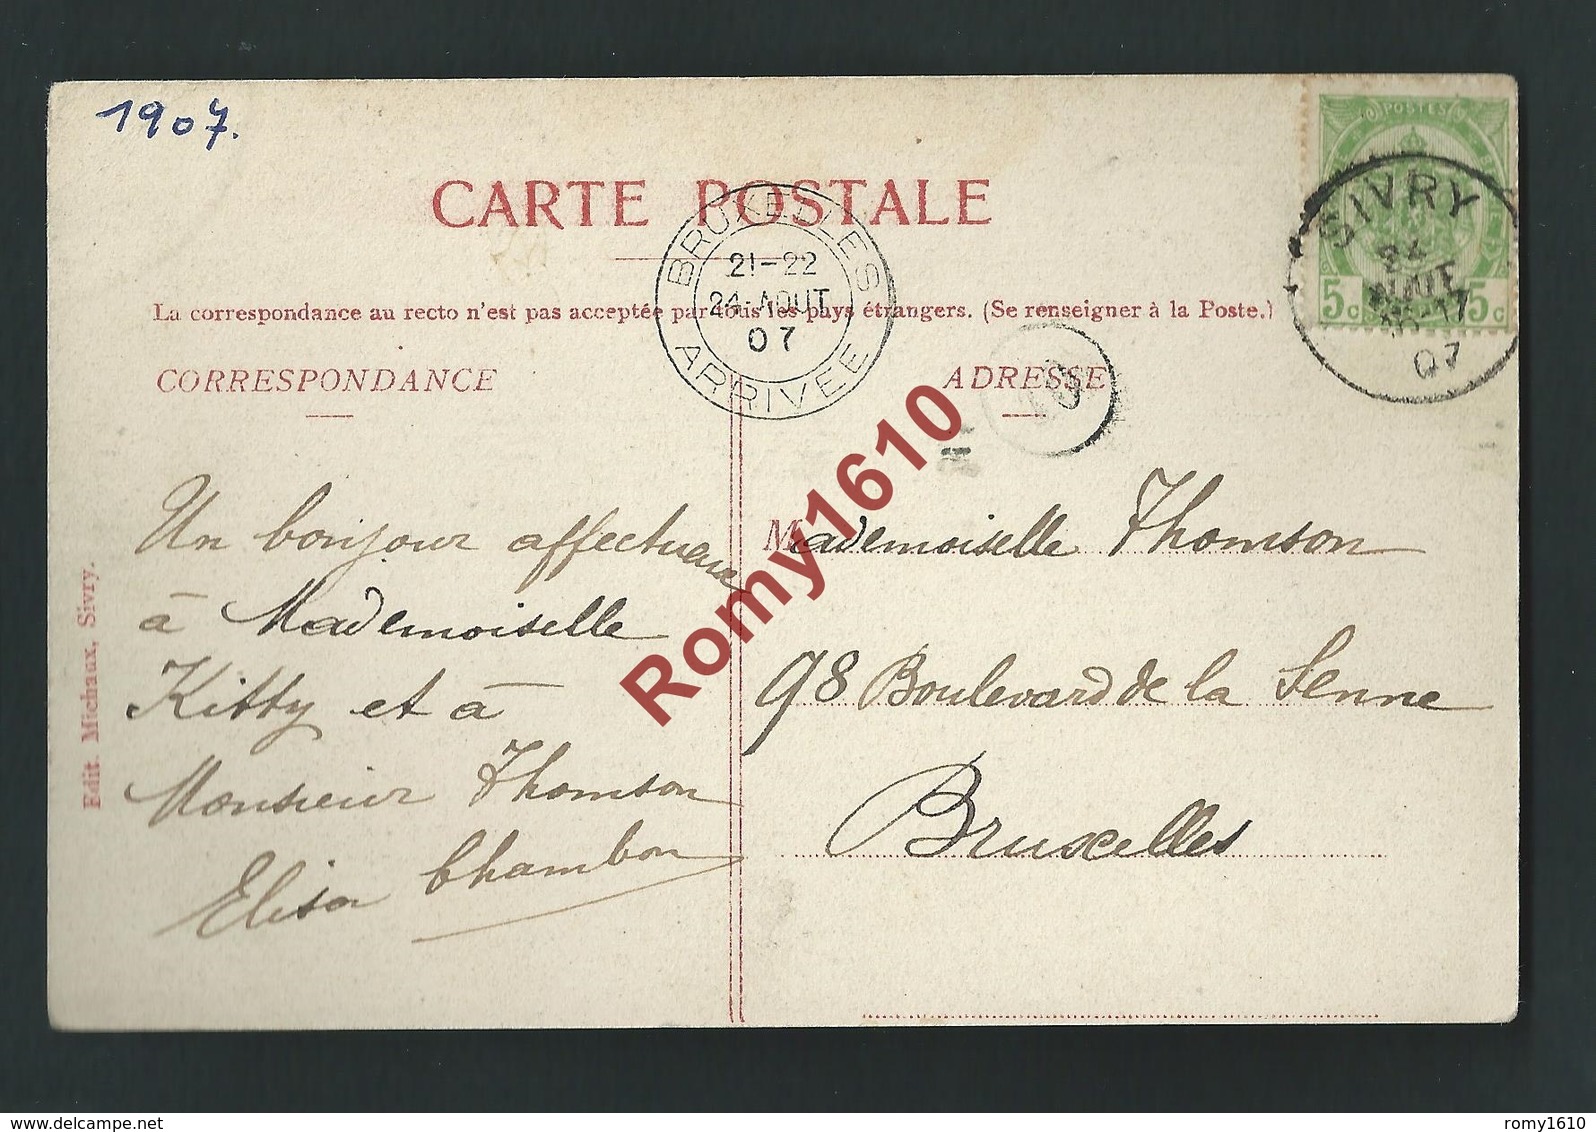 1907.
CARTE POSTALE
BRUXELLES
21-22
24 AOUT
07
ARRIVEE
POSTES
SIVRY
24
AOUT
07
5c 5c
La correspondance au recto n'est pas acceptée par tous les pays étrangers. (Se renseigner à la Poste.)
CORRESPONDANCE
ADRESSE
Un bonjour affectueux
à Mademoiselle
Kitty et à
Monsieur Thomson
Elisa Chambon
Mademoiselle Thomson
98 Boulevard de la Senne
Bruxelles
Edit. Michaux, Sivry.
Romy1610
www.delcampe.net
romy1610